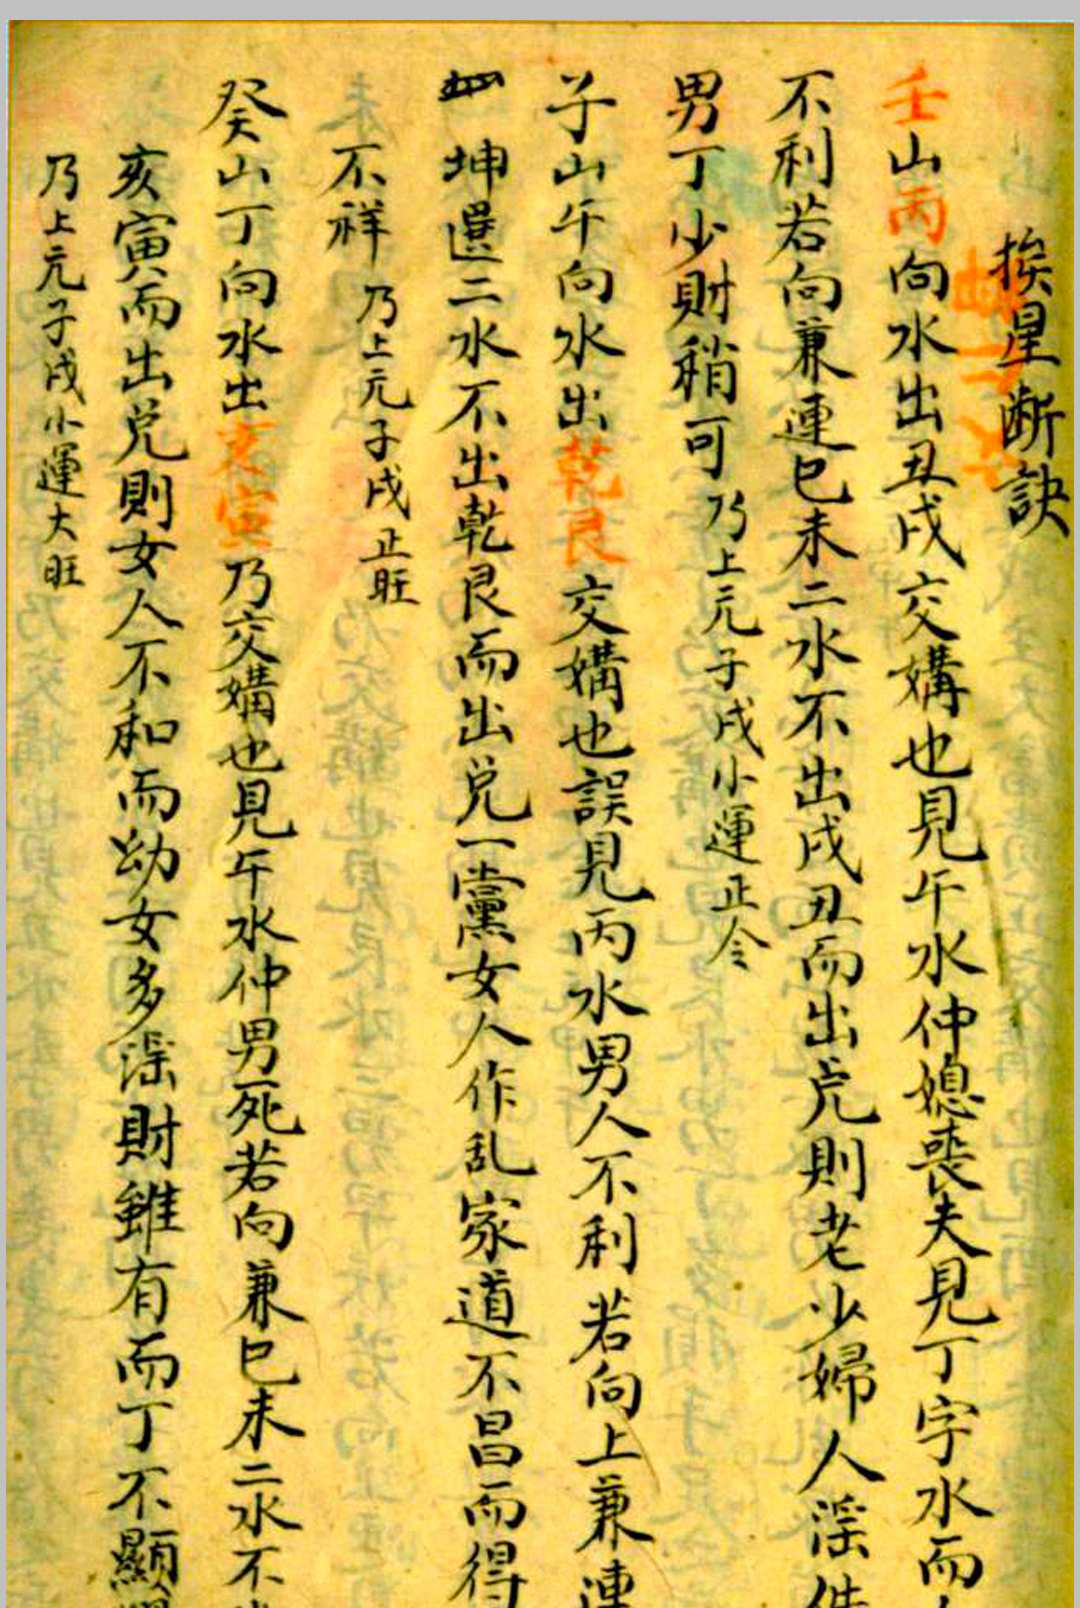 挨星断訣
壬山丙向水出丑戌交媾也見午水仲媳丧夫見丁字水而
不利若向兼連巳未二水不出戌丑而出兑則老少婦人淫
男丁少財稍可乃上元子戌小運正令
子山午向水出乾艮交媾也誤見丙水男人不利若向上兼連
坤選二水不出乾艮而出兑一黨女人作乱家道不昌而得
不祥乃上元子戌正旺
癸山丁向水出亥寅乃交媾也見午水仲男死若向兼巳未二水不
亥寅而出兑則女人不和而幼女多淫財雖有而丁不顯
乃上元子戌小運大旺